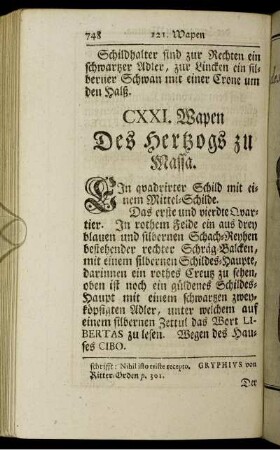 748 121. Wapen
Schildhalter sind zur Rechten ein
schwartzer Adler, zur Lincken ein sil-
berner Schwan mit einer Crone um
den Halß.
CXXI. Wapen
Des Hertzogs zu
Massa.
EIn qvadrirter Schild mit ei-
nem Mittel-Schilde.
Das erste und vierdte Qvar-
tier. In rothem Felde ein aus drey
blauen und silbernen Schach-Reyhen
bestehender rechter Schräg-Balcken,
mit einem silbernen Schildes-Haupte,
darinnen ein rothes Creutz zu sehen,
oben ist noch ein güldenes Schildes-
Haupt mit einem schwartzen zwey-
köpfigten Adler, unter welchem auf
einem silbernen Zettul das Wort LI-
BERTAS zu lesen. Wegen des Hau-
ses CIBO.
schrifft: Nihil isto triste recepto. GRYPHIUS von
Ritter-Orden p. 301.
Der